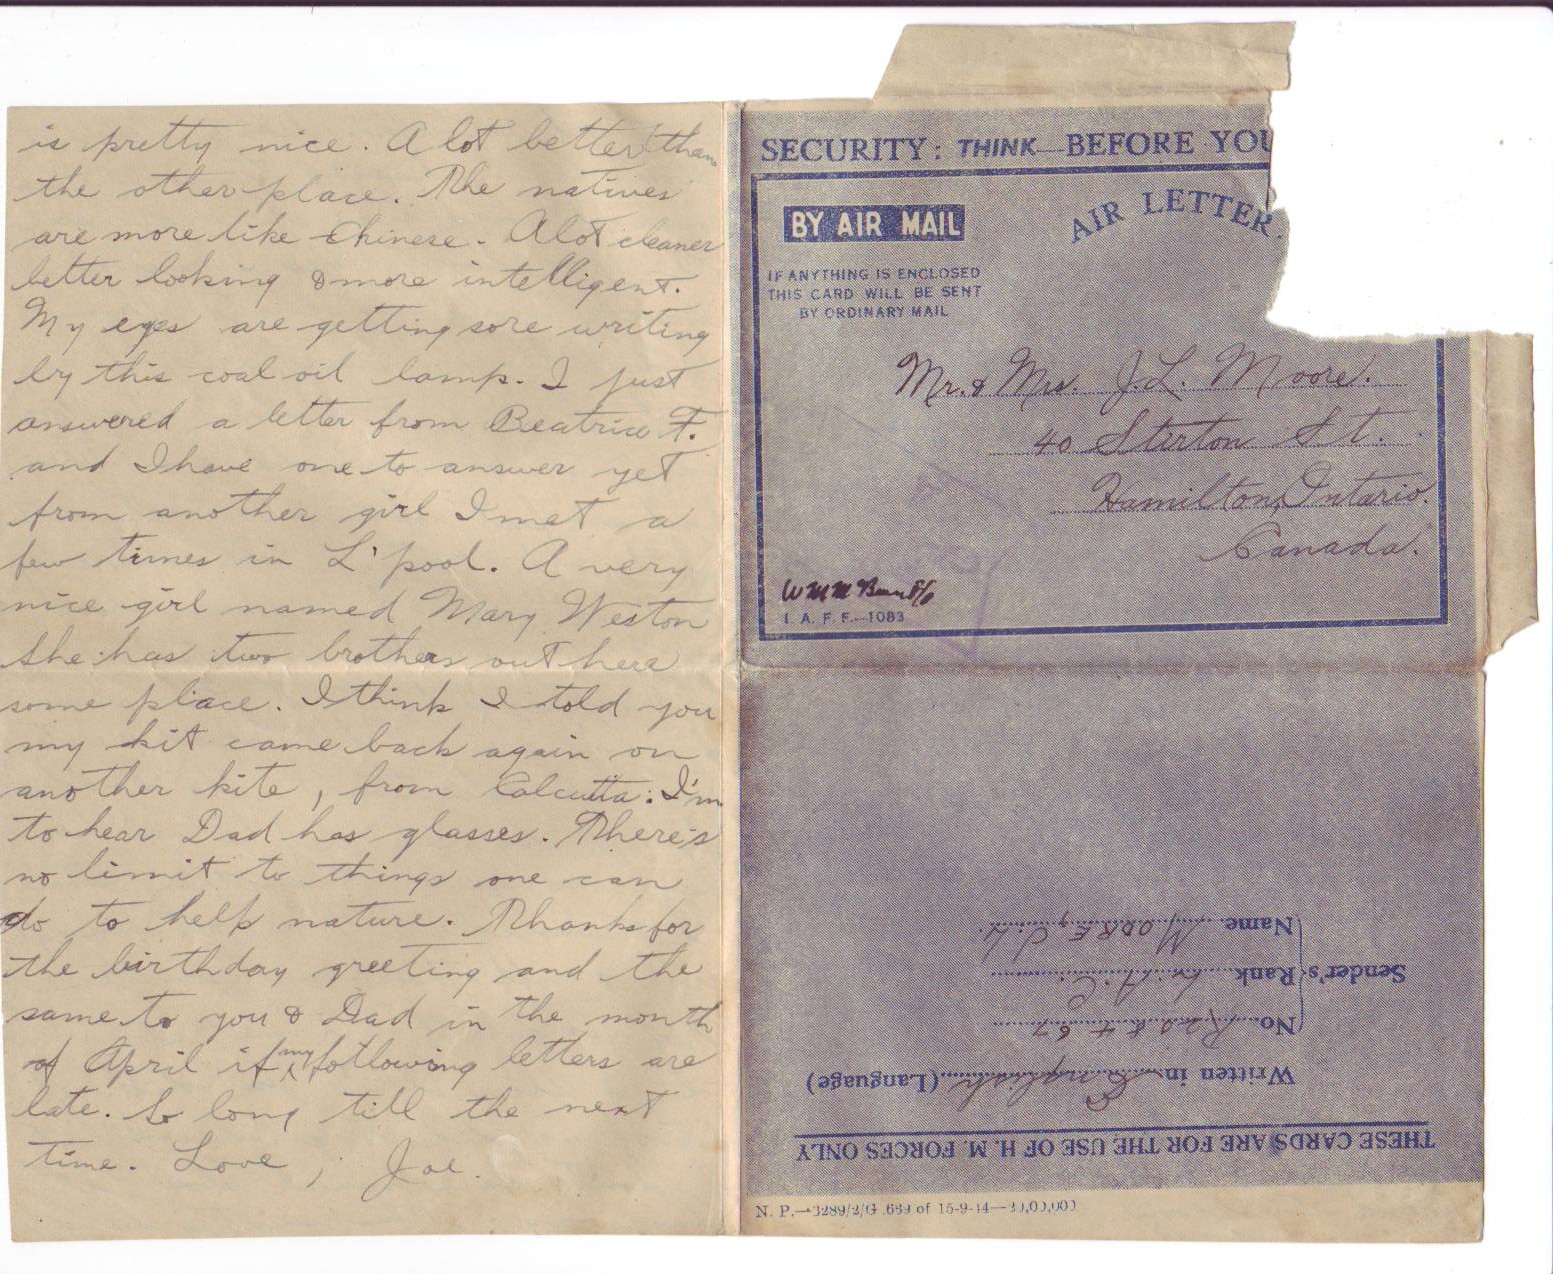 is pretty nice. A lot better than
the other place. The natives
are more like Chinese. A lot cleaner
better looking & more intelligent.
My eyes are getting sore writing
by this coal oil lamp. I just
answered a letter from Beatrice F.
and I have one to answer yet
from another girl I met a
few times in L'pool. A very
nice girl named Mary Weston
She has two brothers out here
some place. I think I told you
my kit came back again on
another kite, from Calcutta. I'm
to hear Dad has glasses. There's
no limit to things one can
do to help nature. Thanks for
the birthday greeting and the
same to you & Dad in the month
of April if any following letters are
late. So long till the next
time. Love, Joe.
SECURITY: THINK—BEFORE YOU
BY AIR MAIL
AIR LETTER
IF ANYTHING IS ENCLOSED
THIS CARD WILL BE SENT
BY ORDINARY MAIL
Mr. & Mrs. J. L. Moore.
40 Stirton St.
Hamilton, Ontario.
Canada.
I. A. F. F.—1083
THESE CARDS ARE FOR THE USE OF H. M. FORCES ONLY
Written in English (Language)
No. R228467
Sender's Rank L.A.C.
Name MOORE, J.H.
N. P.—3289/2/G 639 of 15-9-44—